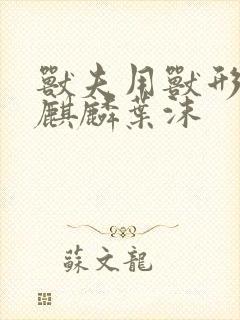 獸夫用獸形
麒麟葉沫
蘇文龍